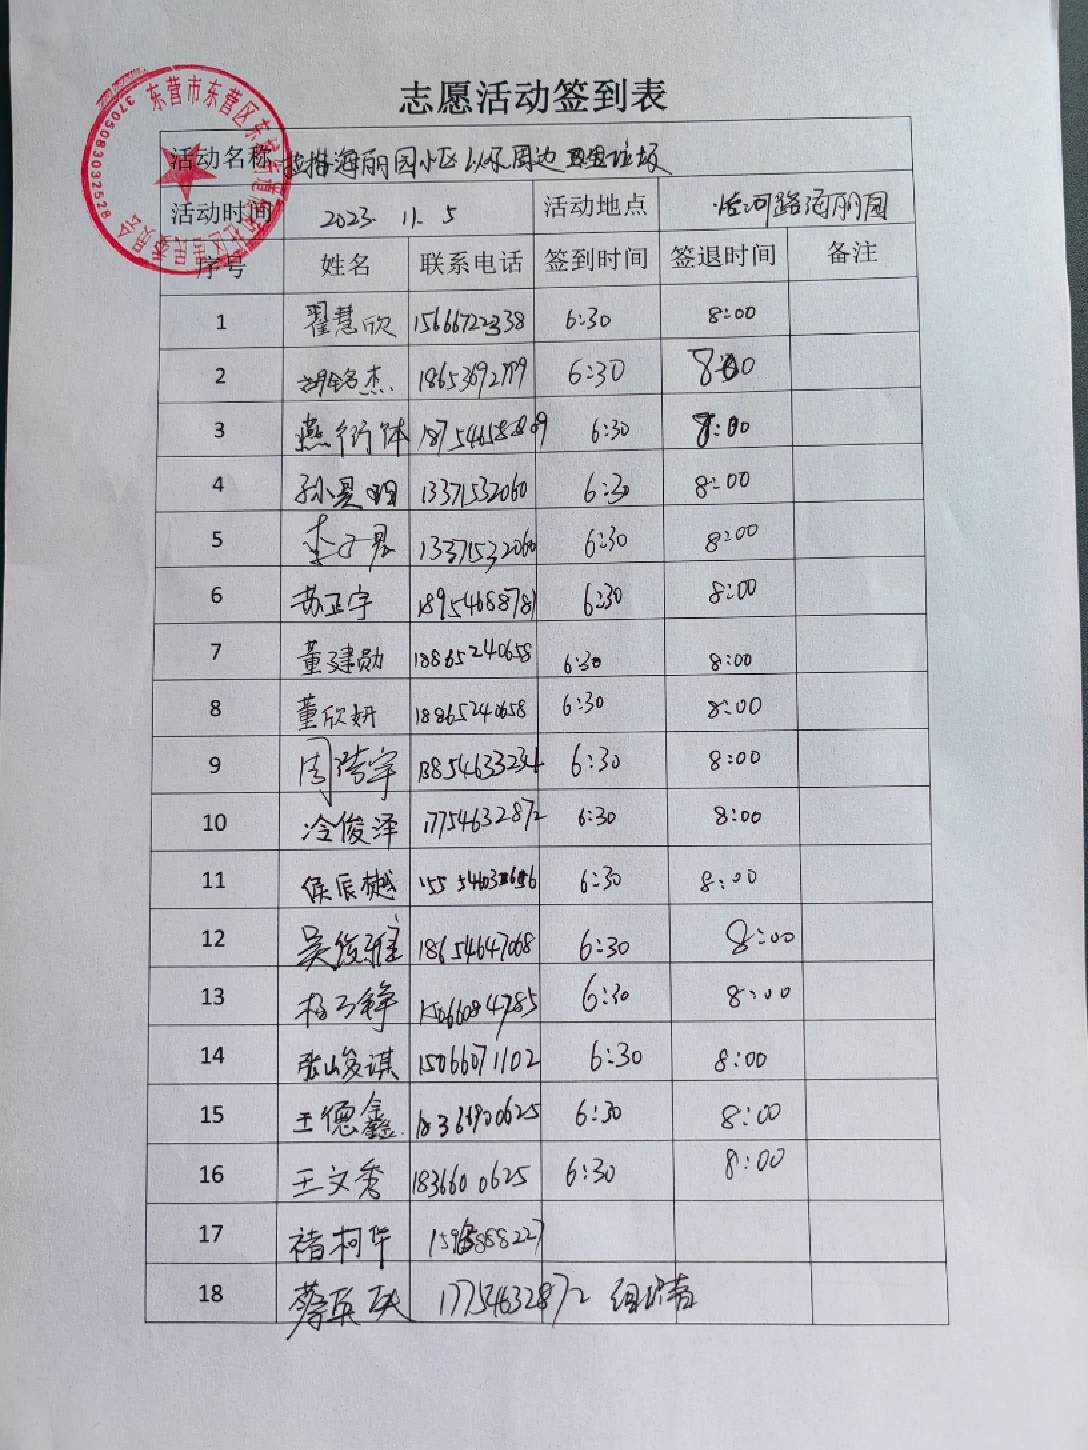 志愿活动签到表
活动名称 海丽园小区以及周边 垃圾
活动时间 2023. 11. 5 活动地点 河路海丽园
序号 姓名 联系电话 签到时间 签退时间 备注
1 翟慧欣 15666722338 6:30 8:00
2 胡铭杰 6:30 8:00
3 燕衍体 6:30 8:00
4 孙昊明 13371532060 6:30 8:00
5 李子君 13371532060 6:30 8:00
6 苏正宇 18954688781 6:30 8:00
7 董建勋 18865240658 6:30 8:00
8 董欣妍 18865240658 6:30 8:00
9 周浩宇 13854633234 6:30 8:00
10 冷俊泽 17754632872 6:30 8:00
11 侯辰樾 6:30 8:00
12 吴俊雅 18654647068 6:30 8:00
13 杨子铮 15066084785 6:30 8:00
14 张峻祺 15066071102 6:30 8:00
15 王德鑫 6:30 8:00
16 王文秀 183660 0625 6:30 8:00
17 褚柯华
18 17754632872 组织者
东营市东营区东城街道 社区居民委员会
3705083032528